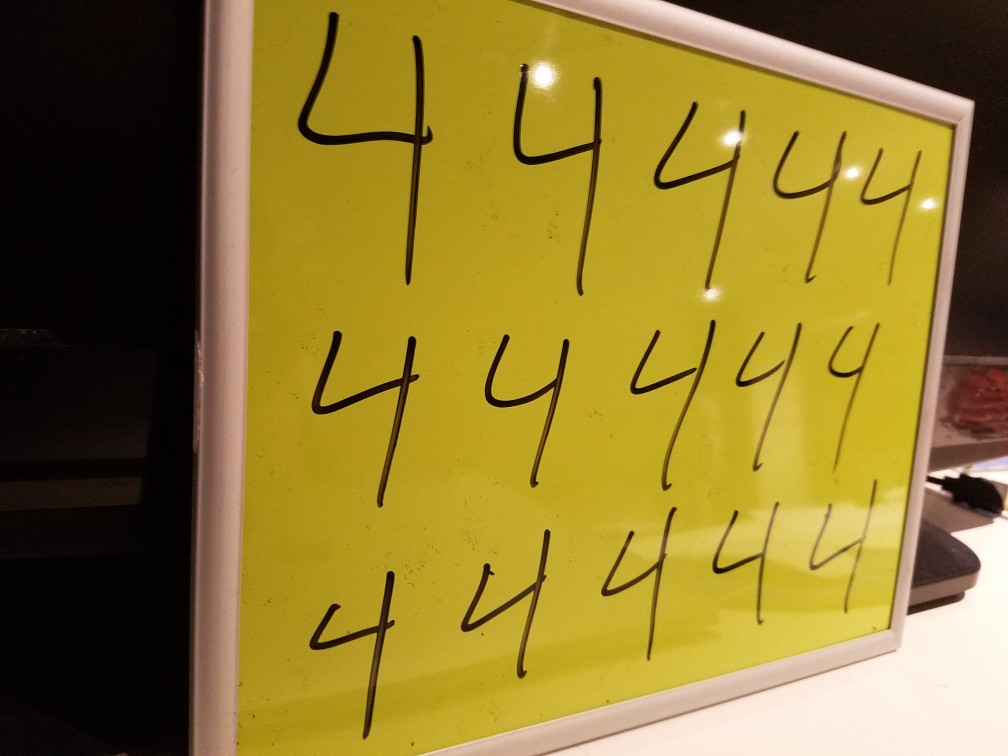 4 4 4 4 4
4 4 4 4 4
4 4 4 4 4